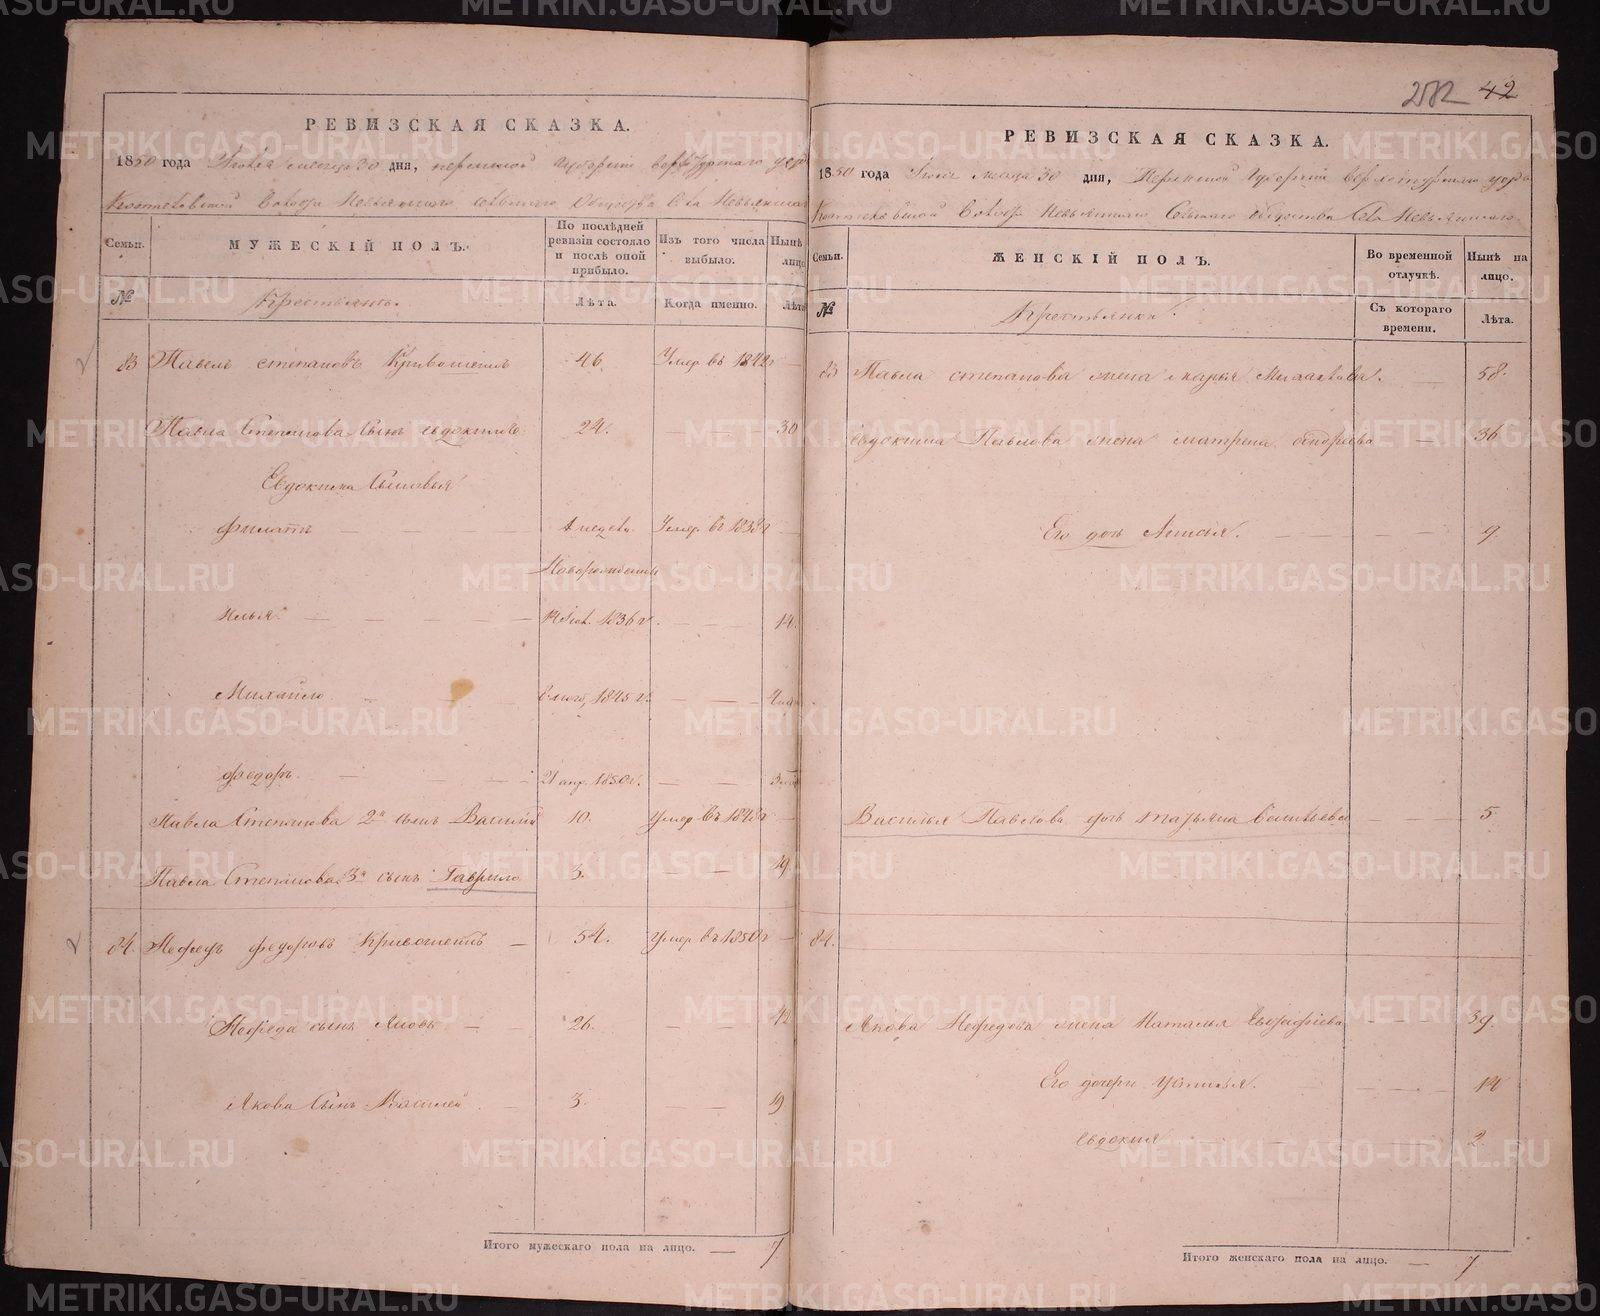 282 42
РЕВИЗСКАЯ СКАЗКА.
1850 года Июня месяца 30 дня, пермской губернии верхотурскаго уезда
Невьянскаго сельскаго Общества Села Невьянскаго
Семьи.
МУЖЕСКІЙ ПОЛЪ.
По послѣдней ревизіи состояло и послѣ оной прибыло.
Изъ того числа выбыло.
Нынѣ на лицо.
№
Крестьянъ.
Лѣта.
Когда именно.
Лѣта
83 Павелъ степановъ Кривошеинъ 46. Умер въ 1842г —
Павла Степанова Сынъ евдокимъ 24. — — — 30
Евдокима Сыновья
филатъ — — 4 недели Умер въ 1838г —
Новорожденны
Илья — — — — — 1836 г. — — — 14.
Михайло — 1845 г. — — —
федоръ — — 21 апр. 1850 г. — —
Павла Степанова 2й сынъ Василий 10. умер въ 1848г —
Павла Степанова 3й сынъ Гаврило 3. — — 19
84. Нефедъ федоровъ Кривошеинъ — 54. умер въ 1850г —
Нефеда сынъ Яковъ — — 26. — — 42
Якова Сынъ Василей — 3. — — 19
Итого мужескаго пола на лицо. — 7
РЕВИЗСКАЯ СКАЗКА.
1850 года Июня месяца 30 дня, Пермской Губернии верхотурскаго уезда
Невьянскаго Сельскаго общества Села Невьянскаго
Семьи.
ЖЕНСКІЙ ПОЛЪ.
Во временной отлучкѣ.
Нынѣ на лицо.
№
Крестьянки.
Съ котораго времени.
Лѣта.
83 Павла степанова жена марья Михайлова. — 58.
евдокима Павлова жена матрена андреева — 36
Его дочь Анисья. — — — — 9
Василья Павлова дочь татьяна — — — 5
84.
Якова Нефедова жена Наталья — — — 39.
Его дочери Устинья. — — — 14
евдокия — — 2
Итого женскаго пола на лицо. — 7
METRIKI.GASO-URAL.RU